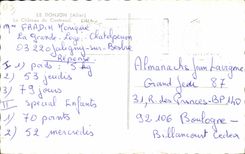 LE DONJON (Allier)
Mme FRADIN Monique
La Grande Loge Chatelperron
03220 Jaligny-sur-Besbre
Réponse
I 1) pards : 5 kg
2) 53 jeudis
3) 79 jours
II Spécial Enfants
1) 70 points
2) 52 mercredis
Almanachs
Grand Jeu 87
31, R. des Princes - BP 140
92106 Boulogne -
Billancourt Cedex